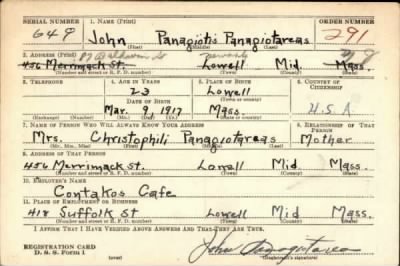 SERIAL NUMBER 1. NAME (Print) ORDER NUMBER
648 John Panagiotis Panagiotareas 291
(First) (Middle) (Last)
2. ADDRESS (Print)
456 Merrimack St. Lowell Mid Mass.
(Number and street or R. F. D. number) (Town) (County) (State)
3. TELEPHONE 4. AGE IN YEARS 5. PLACE OF BIRTH 6. COUNTRY OF CITIZENSHIP
23 Lowell
DATE OF BIRTH (Town or county)
Mar. 9, 1917 Mass U.S.A
(Exchange) (Number) (Mo.) (Day) (Yr.) (State or country)
7. NAME OF PERSON WHO WILL ALWAYS KNOW YOUR ADDRESS 8. RELATIONSHIP OF THAT PERSON
Mrs. Christophili Panagiotareas Mother
(Mr., Mrs., Miss) (First) (Middle) (Last)
9. ADDRESS OF THAT PERSON
456 Merrimack St. Lowell Mid. Mass.
(Number and street or R. F. D. number) (Town) (County) (State)
10. EMPLOYER'S NAME
Contakos Cafe
11. PLACE OF EMPLOYMENT OR BUSINESS
418 Suffolk St Lowell Mid Mass.
(Number and street or R. F. D. number) (Town) (County) (State)
I AFFIRM THAT I HAVE VERIFIED ABOVE ANSWERS AND THAT THEY ARE TRUE.
REGISTRATION CARD
D. S. S. Form 1 (over) John Panagiotareas
(Registrant's signature)